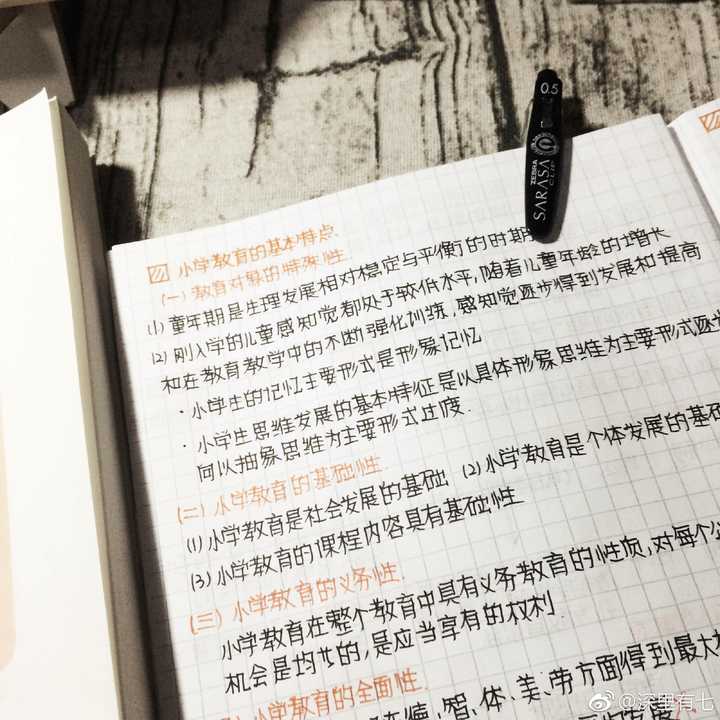 0.5
ZEBRA
SARASA
CLIP
小学教育的基本特点
(一) 教育对象的特殊性.
(1) 童年期是生理发展相对稳定与平衡的时期
(2) 刚入学的儿童感知觉都处于较低水平,随着儿童年龄的增长
和在教育教学中的不断强化训练,感知觉逐步得到发展和提高
· 小学生的记忆主要形式是形象记忆
· 小学生思维发展的基本特征是以具体形象思维为主要形式逐步
向以抽象思维为主要形式过度.
(二) 小学教育的基础性.
(1) 小学教育是社会发展的基础 (2) 小学教育是个体发展的基础
(3) 小学教育的课程内容具有基础性
(三) 小学教育的义务性.
小学教育在整个教育中具有义务教育的性质,对每个公
机会是均等的,是应当享有的权利.
小学教育的全面性.
德、智、体、美、劳方面得到最大
@深里有七